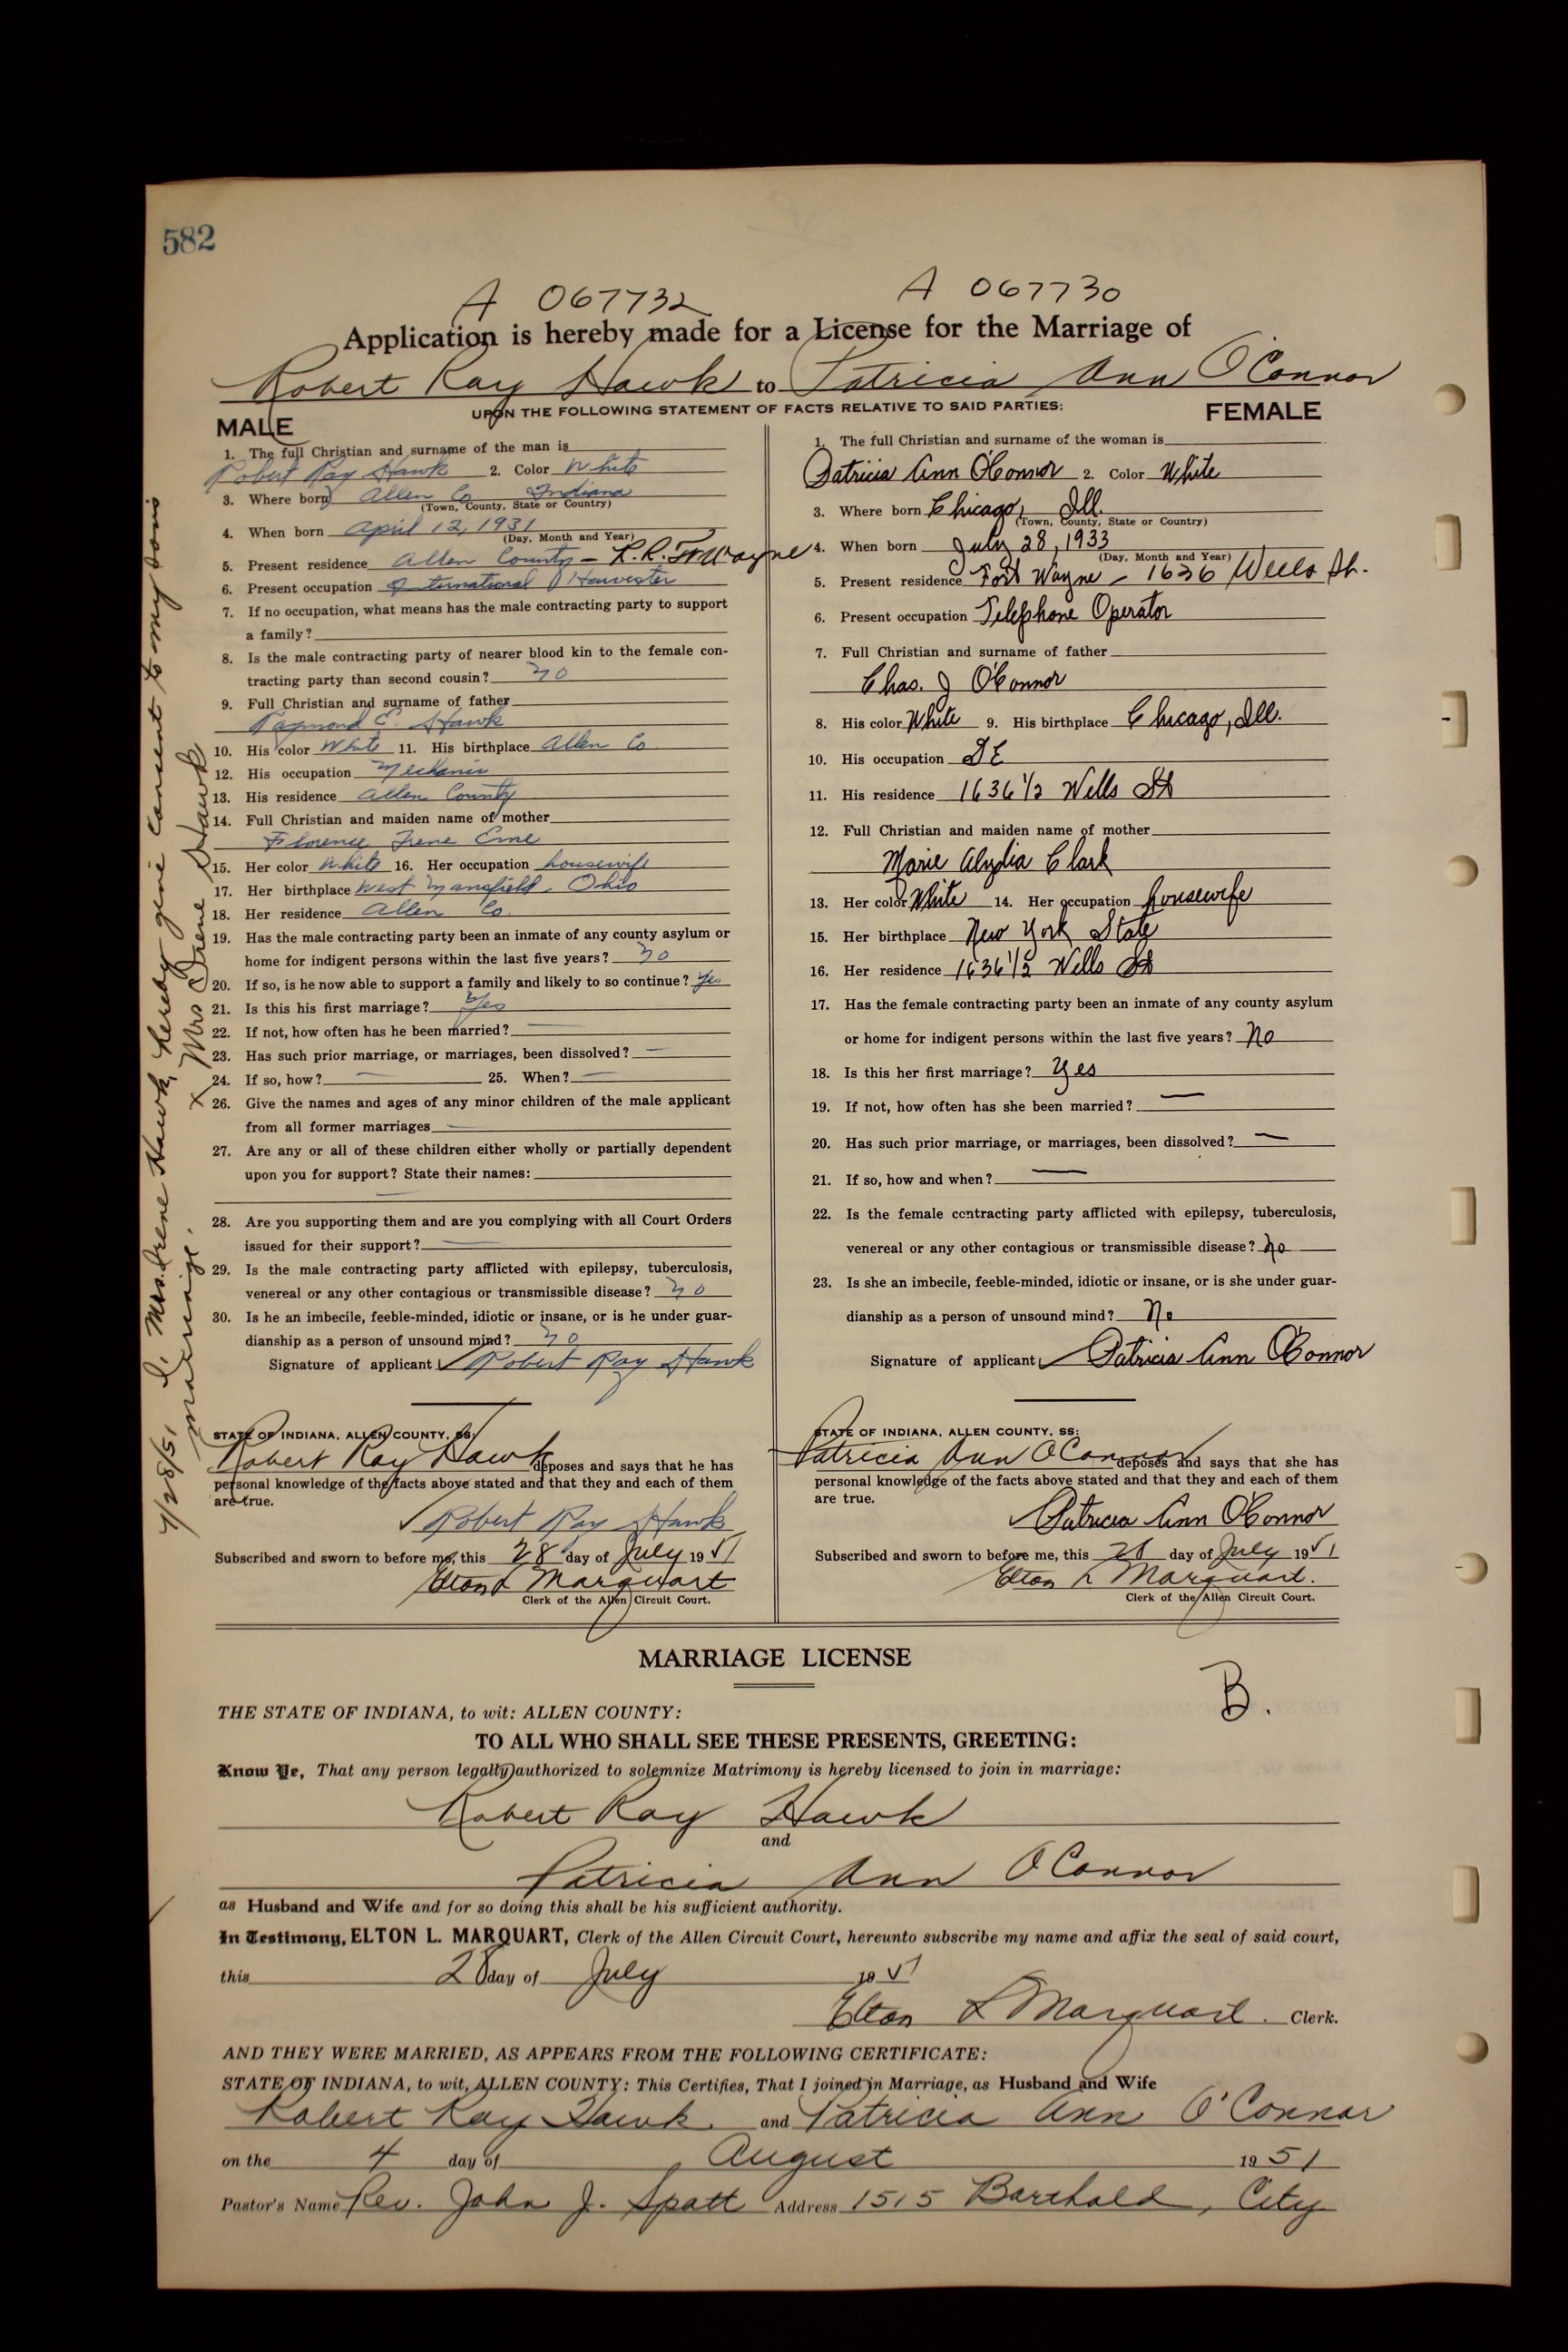 582
A 067732 A 067730
Application is hereby made for a License for the Marriage of
Robert Ray Hawk to Patricia Ann O'Connor
UPON THE FOLLOWING STATEMENT OF FACTS RELATIVE TO SAID PARTIES:
MALE
1. The full Christian and surname of the man is
Robert Ray Hawk 2. Color White
3. Where born Allen Co Indiana
(Town, County, State or Country)
4. When born April 12, 1931
(Day, Month and Year)
5. Present residence Allen County - R.R. Ft Wayne
6. Present occupation International Harvester
7. If no occupation, what means has the male contracting party to support
a family?
8. Is the male contracting party of nearer blood kin to the female con-
tracting party than second cousin? no
9. Full Christian and surname of father
Raymond C. Hawk
10. His color White 11. His birthplace Allen Co
12. His occupation Mechanic
13. His residence Allen County
14. Full Christian and maiden name of mother
Florence Irene
15. Her color White 16. Her occupation housewife
17. Her birthplace West Mansfield, Ohio
18. Her residence Allen Co.
19. Has the male contracting party been an inmate of any county asylum or
home for indigent persons within the last five years? no
20. If so, is he now able to support a family and likely to so continue? Yes
21. Is this his first marriage? Yes
22. If not, how often has he been married? —
23. Has such prior marriage, or marriages, been dissolved? —
24. If so, how? — 25. When? —
26. Give the names and ages of any minor children of the male applicant
from all former marriages —
27. Are any or all of these children either wholly or partially dependent
upon you for support? State their names:
—
28. Are you supporting them and are you complying with all Court Orders
issued for their support? —
29. Is the male contracting party afflicted with epilepsy, tuberculosis,
venereal or any other contagious or transmissible disease? no
30. Is he an imbecile, feeble-minded, idiotic or insane, or is he under guar-
dianship as a person of unsound mind? no
Signature of applicant Robert Ray Hawk
STATE OF INDIANA, ALLEN COUNTY, SS:
Robert Ray Hawk deposes and says that he has
personal knowledge of the facts above stated and that they and each of them
are true.
Robert Ray Hawk
Subscribed and sworn to before me, this 28 day of July 1951
Elton L Marquart
Clerk of the Allen Circuit Court.
7/28/51 I, Mrs. Irene Hawk, hereby give consent to my sons
marriage.
X Mrs Irene Hawk
FEMALE
1. The full Christian and surname of the woman is
Patricia Ann O'Connor 2. Color White
3. Where born Chicago, Ill.
(Town, County, State or Country)
4. When born July 28, 1933
(Day, Month and Year)
5. Present residence Fort Wayne - 1636 Wells St.
6. Present occupation Telephone Operator
7. Full Christian and surname of father
Chas. J O'Connor
8. His color White 9. His birthplace Chicago, Ill.
10. His occupation
11. His residence 1636 1/2 Wells St
12. Full Christian and maiden name of mother
Marie Clark
13. Her color White 14. Her occupation housewife
15. Her birthplace New York State
16. Her residence 1636 1/2 Wells St
17. Has the female contracting party been an inmate of any county asylum
or home for indigent persons within the last five years? No
18. Is this her first marriage? Yes
19. If not, how often has she been married? —
20. Has such prior marriage, or marriages, been dissolved? —
21. If so, how and when? —
22. Is the female contracting party afflicted with epilepsy, tuberculosis,
venereal or any other contagious or transmissible disease? No
23. Is she an imbecile, feeble-minded, idiotic or insane, or is she under guar-
dianship as a person of unsound mind? No
Signature of applicant Patricia Ann O'Connor
STATE OF INDIANA, ALLEN COUNTY, SS:
Patricia Ann O'Connor deposes and says that she has
personal knowledge of the facts above stated and that they and each of them
are true.
Patricia Ann O'Connor
Subscribed and sworn to before me, this 28 day of July 1951
Elton L Marquart.
Clerk of the Allen Circuit Court.
MARRIAGE LICENSE
B.
THE STATE OF INDIANA, to wit: ALLEN COUNTY:
TO ALL WHO SHALL SEE THESE PRESENTS, GREETING:
Know Ye, That any person legally authorized to solemnize Matrimony is hereby licensed to join in marriage:
Robert Ray Hawk
and
Patricia Ann O'Connor
as Husband and Wife and for so doing this shall be his sufficient authority.
In Testimony, ELTON L. MARQUART, Clerk of the Allen Circuit Court, hereunto subscribe my name and affix the seal of said court,
this 28 day of July 1951
Elton L Marquart. Clerk.
AND THEY WERE MARRIED, AS APPEARS FROM THE FOLLOWING CERTIFICATE:
STATE OF INDIANA, to wit, ALLEN COUNTY: This Certifies, That I joined in Marriage, as Husband and Wife
Robert Ray Hawk and Patricia Ann O'Connor
on the 4 day of August 1951
Pastor's Name Rev. John J. Spatt Address 1515 Barthold, City